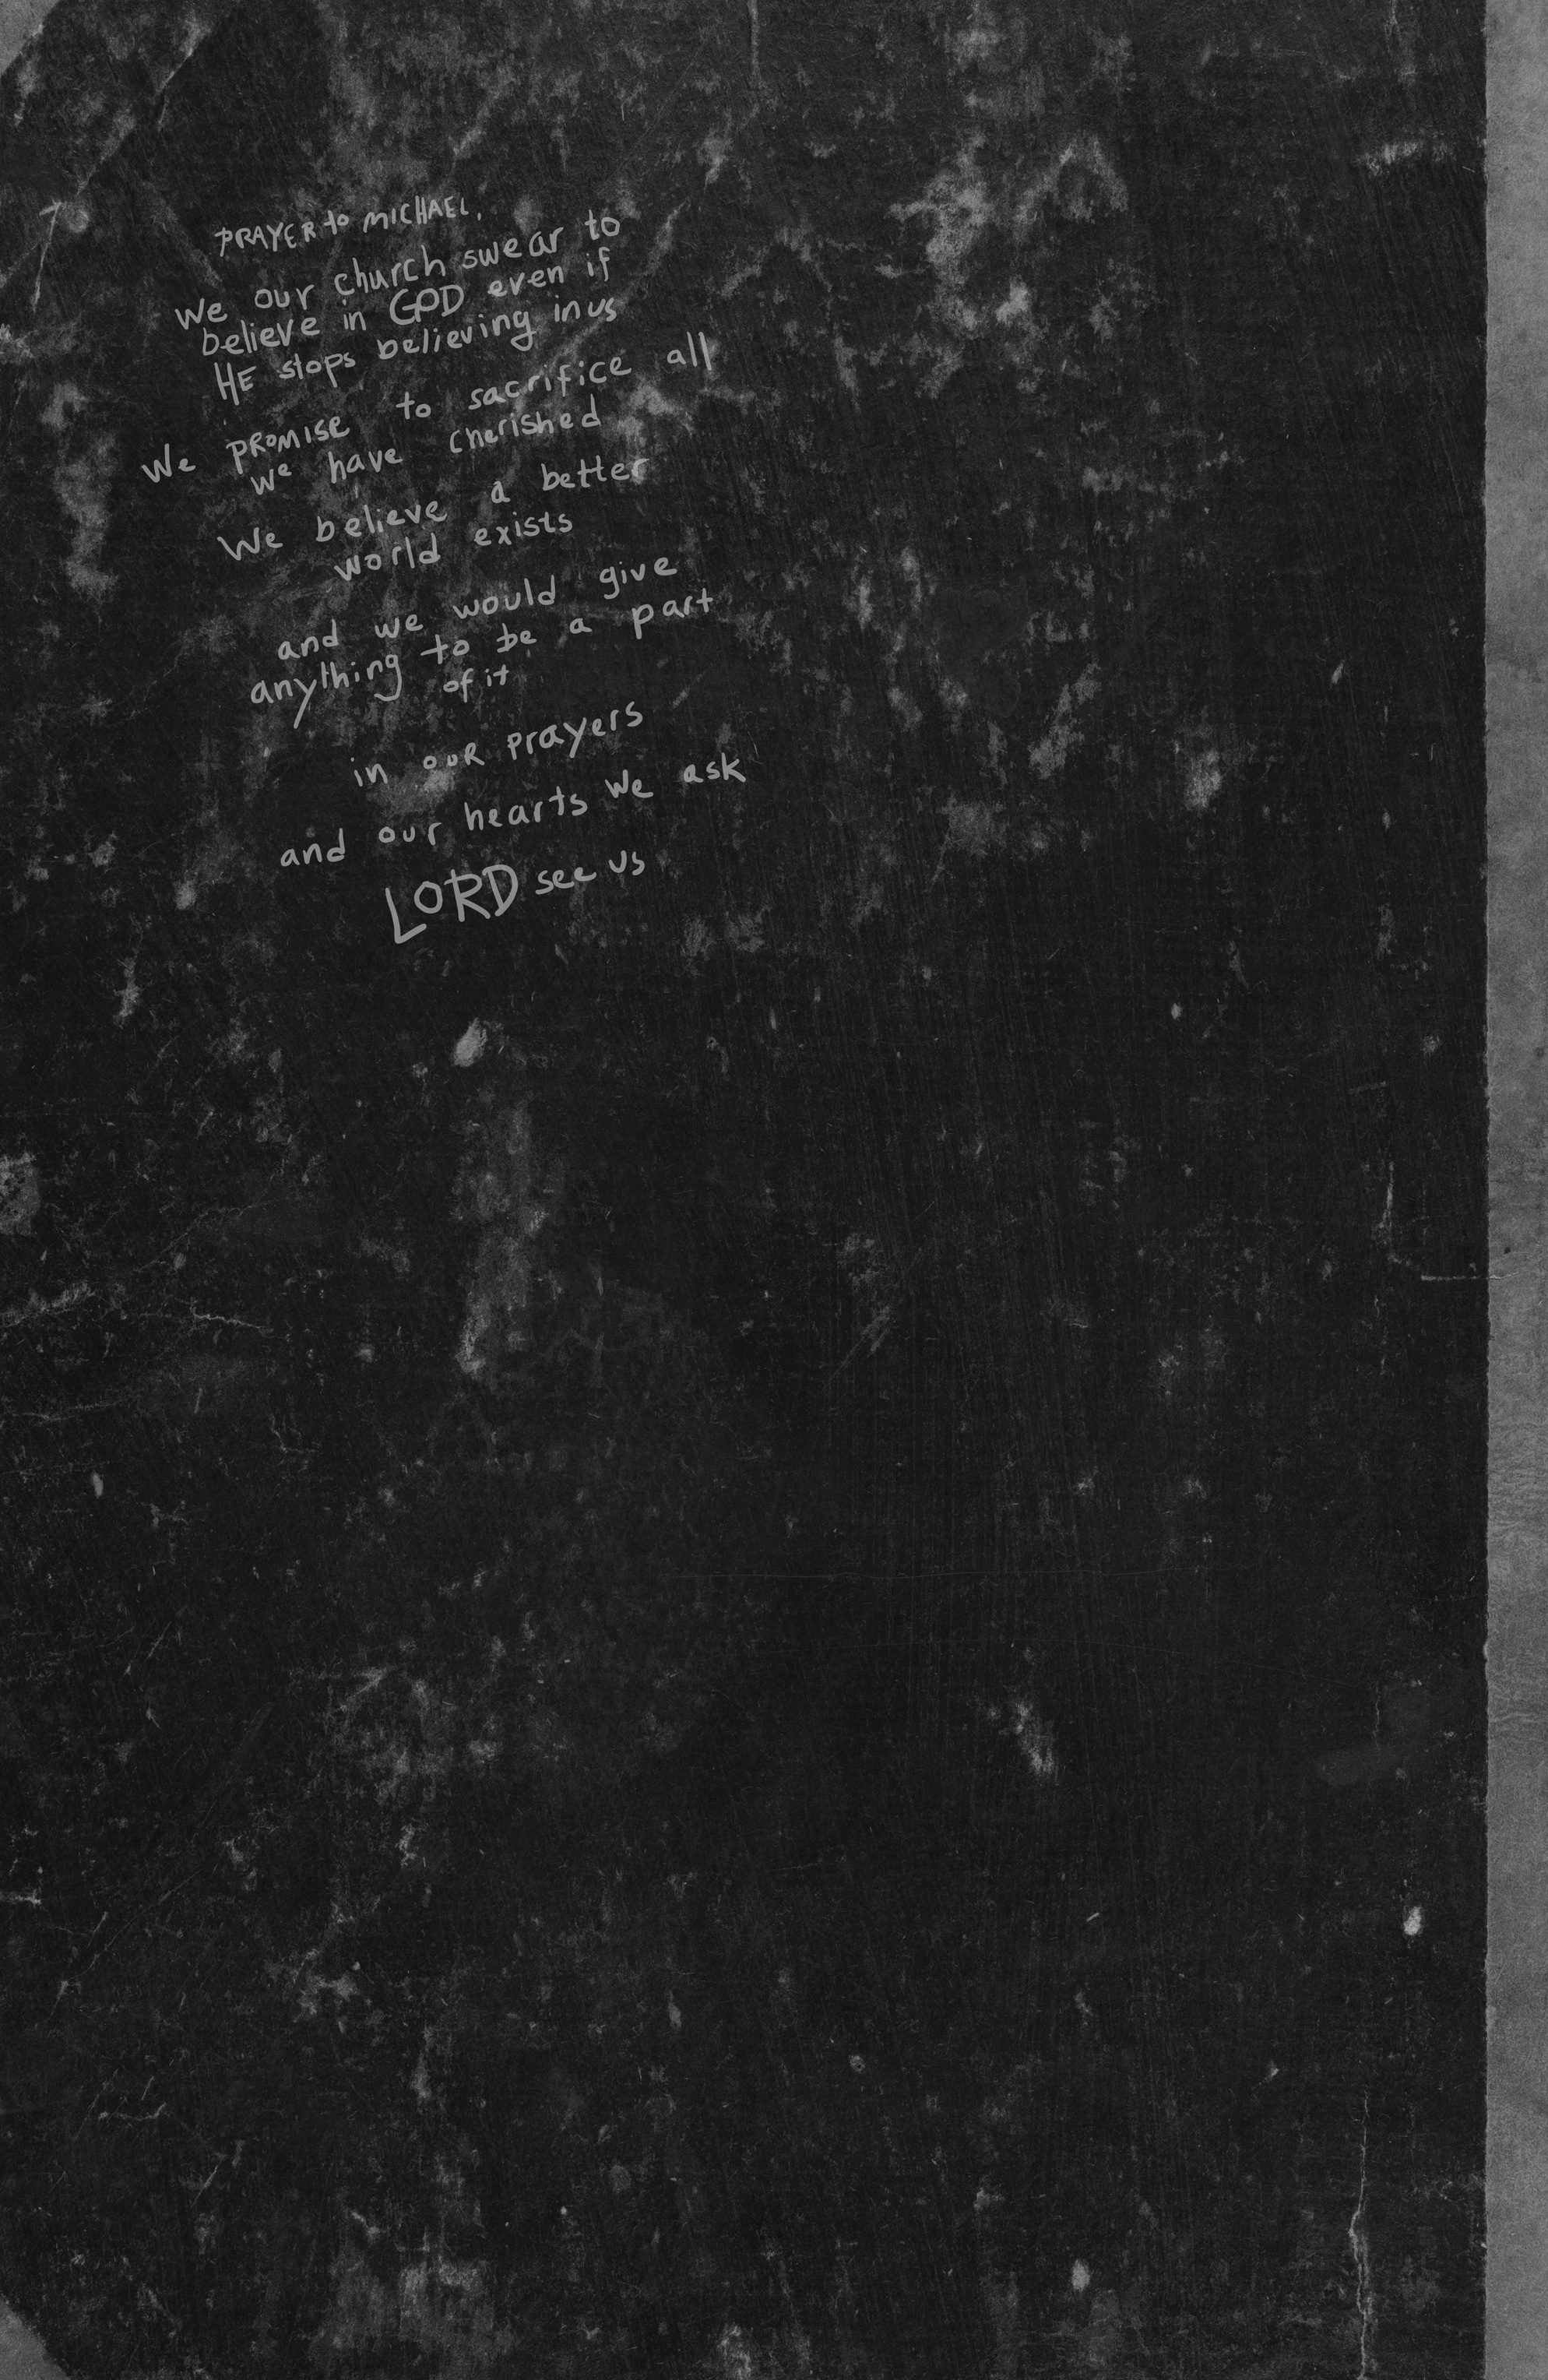 PRAYER to MICHAEL.
We our church swear to
believe in GOD even if
HE stops believing in us
We PROMISE to sacrifice all
we have cherished
We believe a better
world exists
and we would give
anything to be a part
of it
in ouR prayers
and our hearts we ask
LORD see us